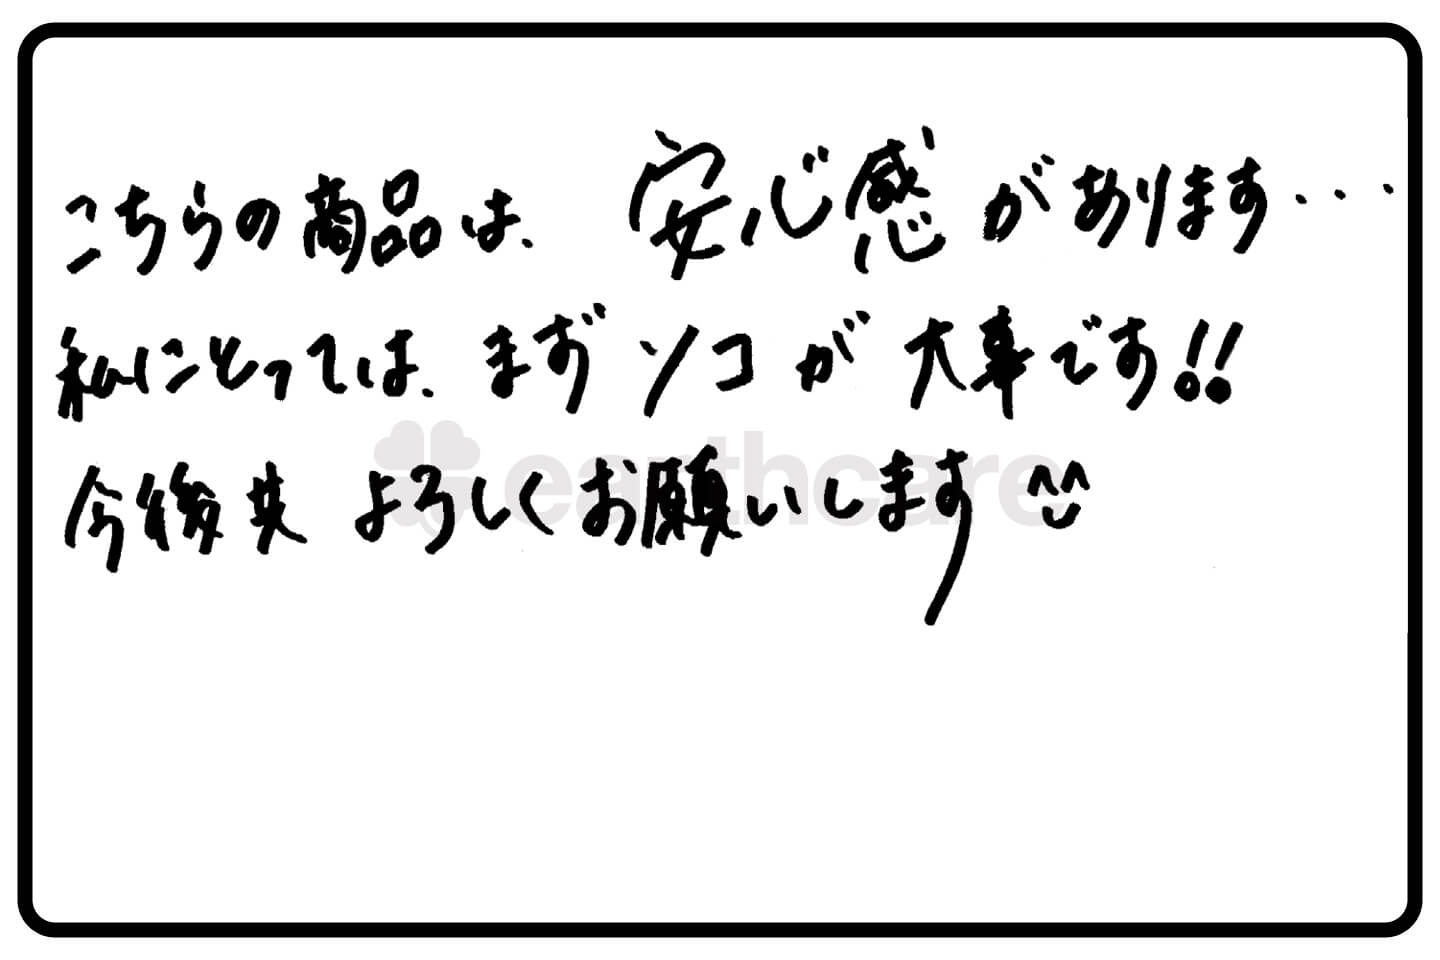 こちらの商品は、安心感があります・・・
私にとっては、まずソコが大事です!!
今後共 よろしくお願いします ^^
earthcare